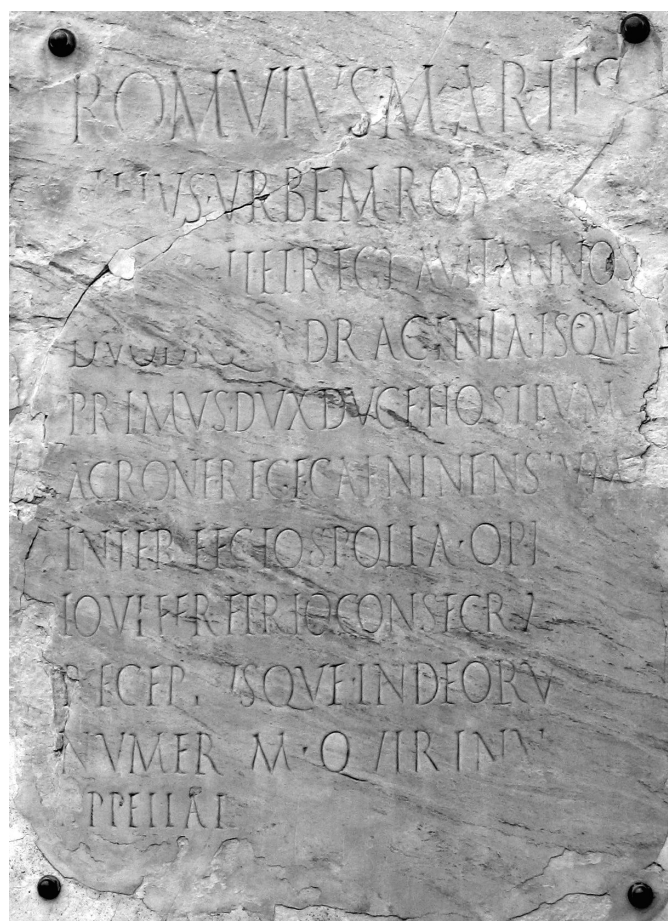 ROMVLVS·MARTIS
VRBEM·ROM
ET·REGNAVIT·ANNOS
DVODE DRAGINTA·ISQVE
PRIMVS·DVX·DVCE·HOSTIVM
ACRONE·REGE·CAENINENSIVM
INTERFECTO·SPOLIA·OPI
IOVI·FERETRIO·CONSECRA
RECEP VSQVE·IN·DEORV
NVMERVM·QVIRINV
PPELLAT